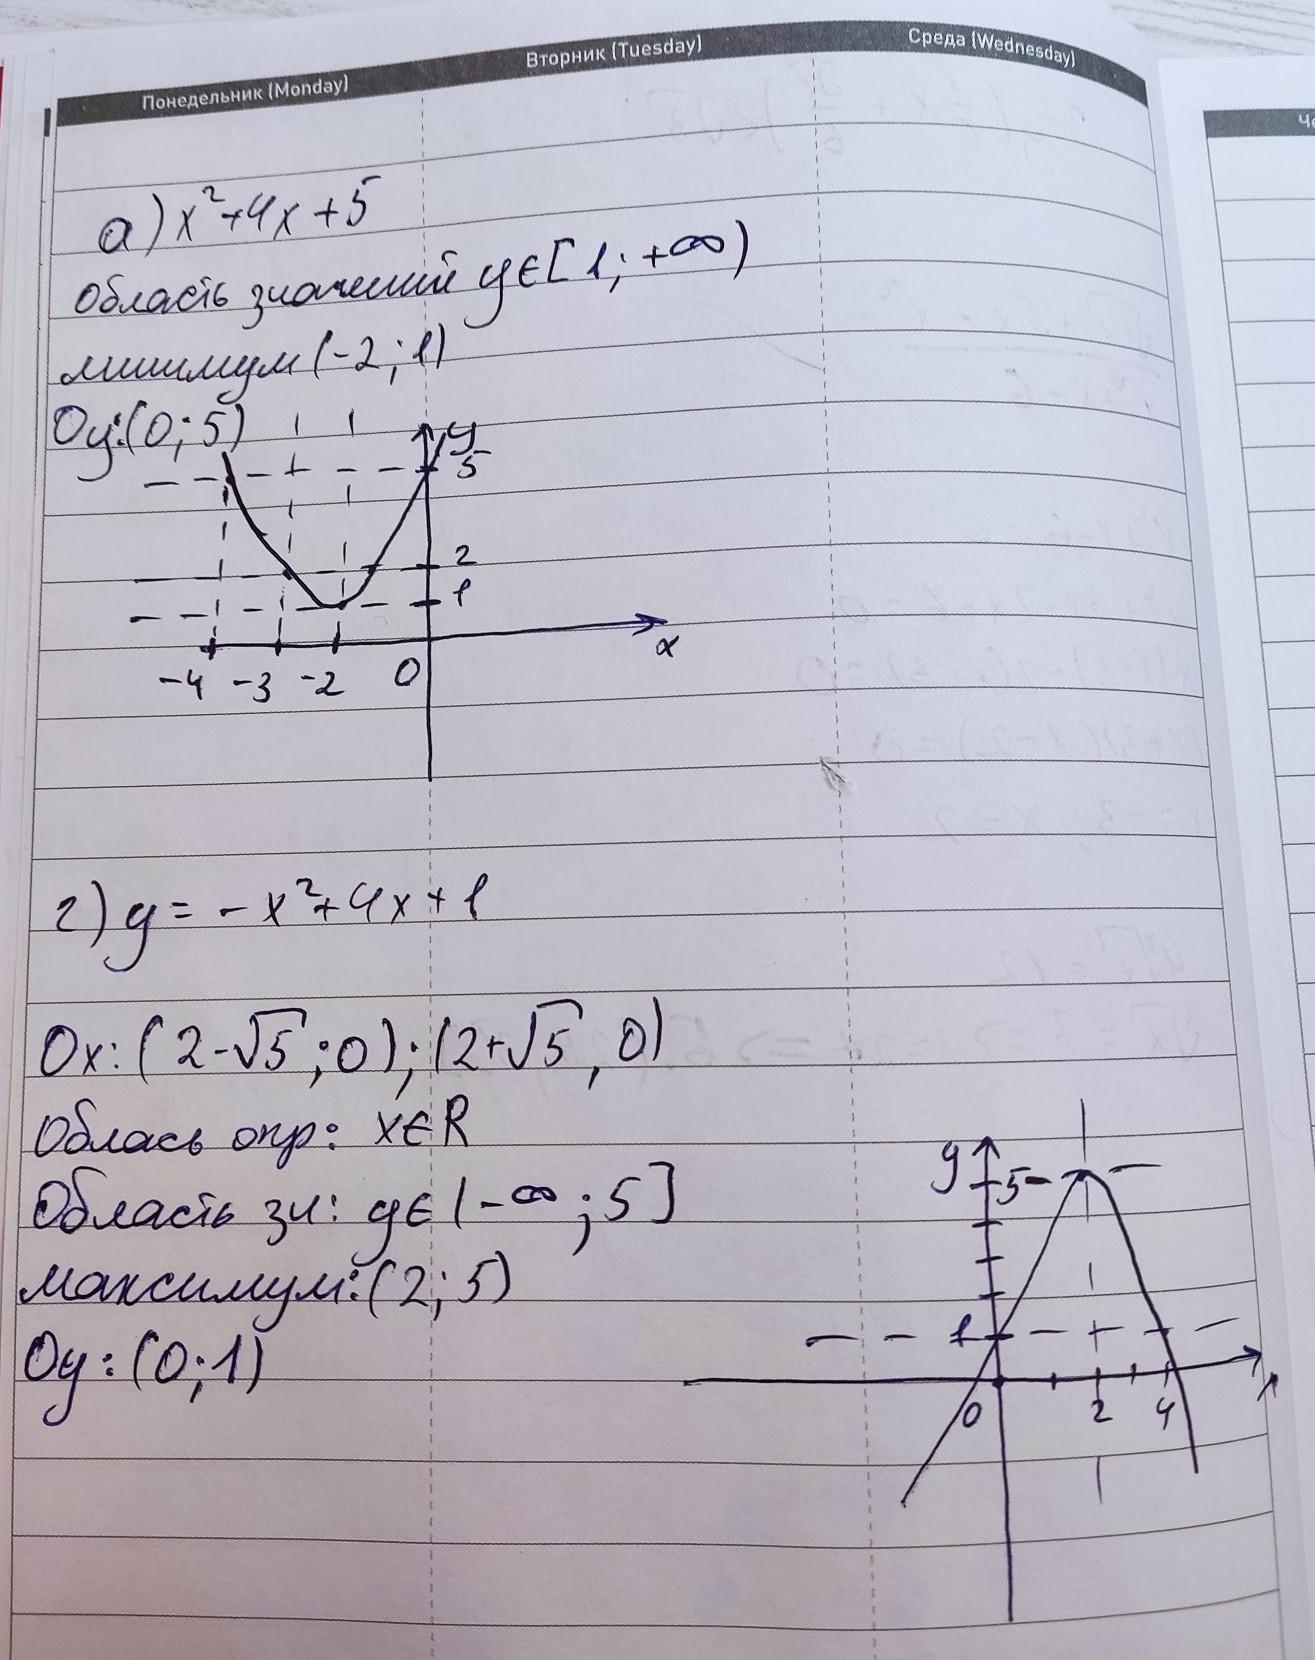 Понедельник (Monday)
Вторник (Tuesday)
Среда (Wednesday)
а) x²+4x+5
область значений y∈[1;+∞)
минимум (-2;1)
Oy:(0;5)
y
5
2
1
-4 -3 -2 0
x
г) y = -x²+4x+1
Ox: (2-√5;0);(2+√5,0)
Облась опр: x∈R
Область зн: y∈(-∞;5]
максимум:(2;5)
Oy:(0;1)
y
5
1
0 2 4
x